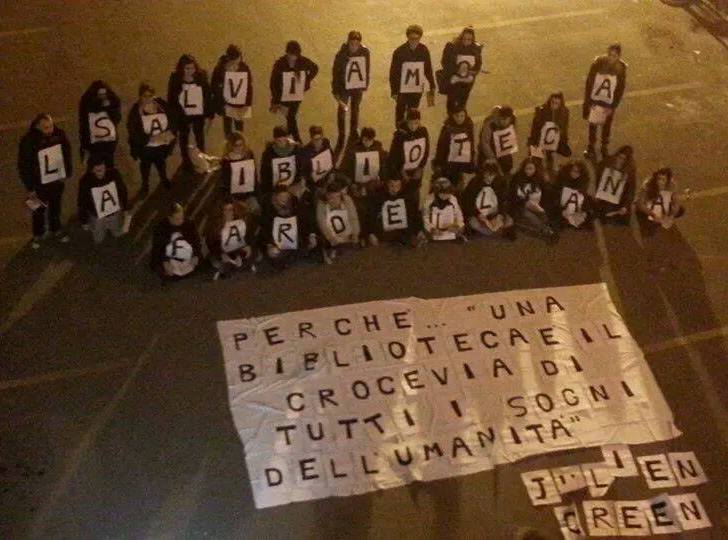 SALVIAMO
LA BIBLIOTECA
FARDELLIANA
PERCHE... "UNA
BIBLIOTECA E IL
CROCEVIA DI
TUTTI I SOGNI
DELL'UMANITÀ"
JULIEN
GREEN